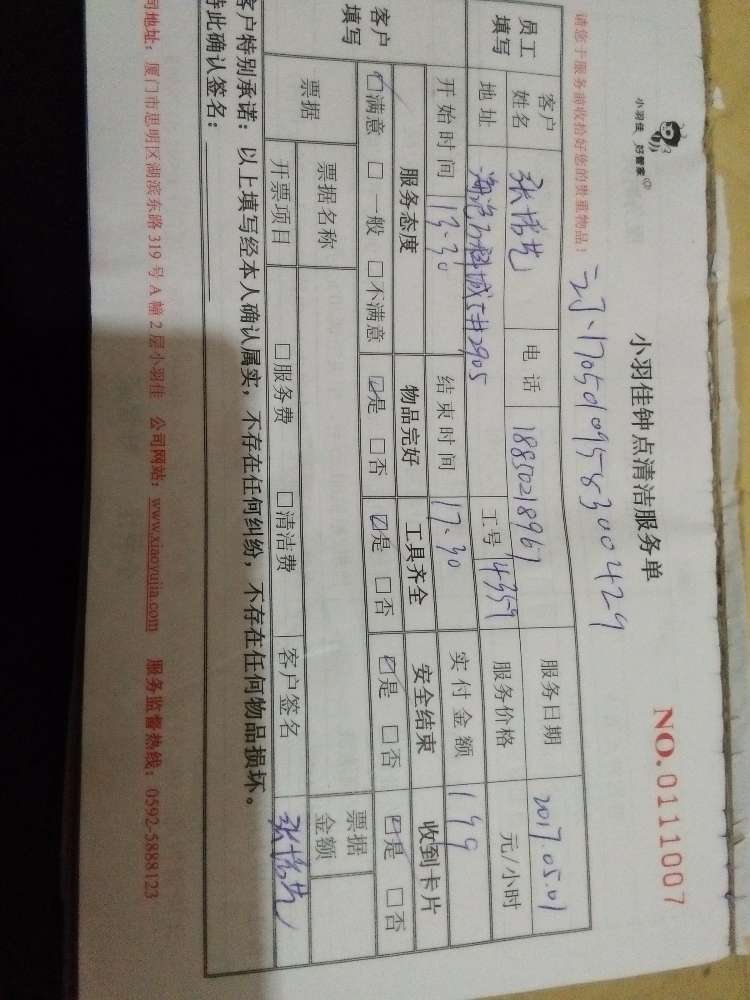 小羽佳 好管家
小羽佳钟点清洁服务单
NO.0111007
请您于服务前收拾好您的贵重物品!
1705010958300429
员工填写
客户姓名
电话 18850218967
服务日期 2017.05.01
地址
2905
工号 4359
服务价格 元/小时
开始时间 13.30
结束时间 17.30
实付金额 149
客户填写
服务态度 物品完好 工具齐全 安全结束 收到卡片
☑满意 □一般 □不满意 ☑是 □否 ☑是 □否 ☑是 □否 ☑是 □否
票据
票据名称
票据金额
开票项目 □服务费 □清洁费 客户签名
客户特别承诺:以上填写经本人确认属实,不存在任何纠纷,不存在任何物品损坏。
特此确认签名:
司地址:厦门市思明区湖滨东路 319 号 A 幢 2 层小羽佳 公司网站:www.xiaoyujia.com 服务监督热线:0592-5888123